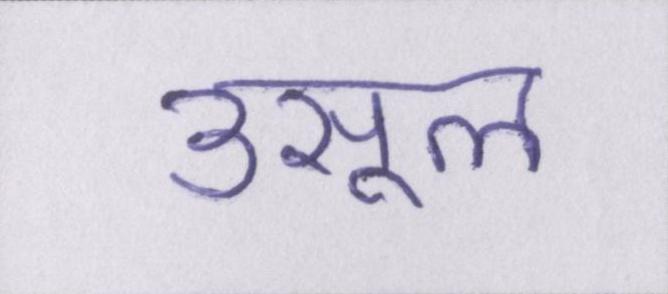 उसूल